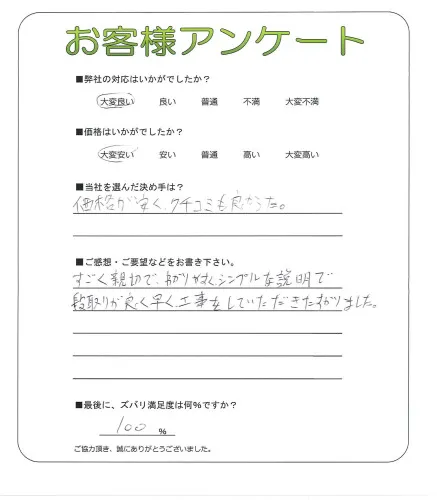 お客様アンケート
■弊社の対応はいかがでしたか?
大変良い 良い 普通 不満 大変不満
■価格はいかがでしたか?
大変安い 安い 普通 高い 大変高い
■当社を選んだ決め手は?
価格が安く、クチコミも良かった。
■ご感想・ご要望などをお書き下さい。
すごく親切で、わかりやすくシンプルな説明で
段取りが良く早く、工事をしていただき
■最後に、ズバリ満足度は何%ですか?
100 %
ご協力頂き、誠にありがとうございました。